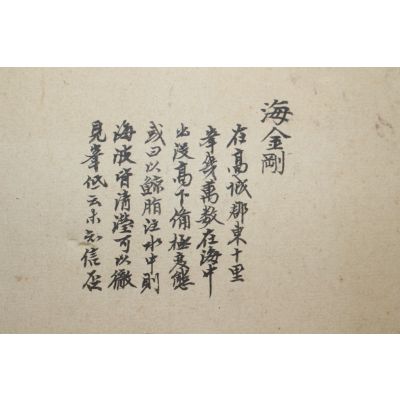 海金剛
在高城郡東十里
峯幾萬数在海中
出没高下備極变態
或曰以鯨脂注水中則
海波皆清瀅可以徹
見峯低云未知信否